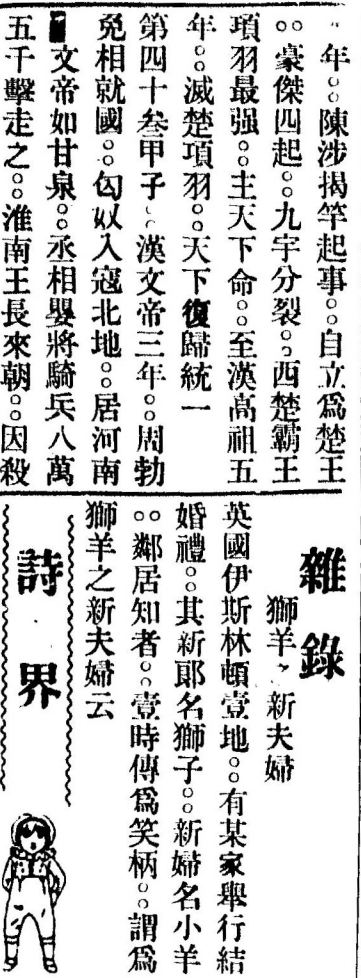 年。。陳涉揭竿起事。。自立爲楚王
。。豪傑四起。。九宇分裂。。西楚霸王
項羽最强。。主天下命。。至漢高祖五
年。。滅楚項羽。。天下復歸統一
第四十叁甲子。。漢文帝三年。。周勃
免相就國。。匈奴入寇北地。。居河南
文帝如甘泉。。丞相嬰將騎兵八萬
五千擊走之。。淮南王長來朝。。因殺
雜錄
獅羊之新夫婦
英國伊斯林頓壹地。。有某家舉行結
婚禮。。其新郞名獅子。。新婦名小羊
。。鄰居知者。。壹時傳爲笑柄。。謂爲
獅羊之新夫婦云
詩界